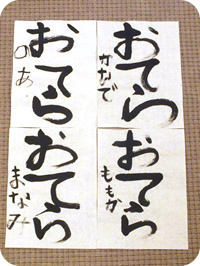 おてら
かなで
おてら
のあ
おてら
ももか
おてら
まなみ